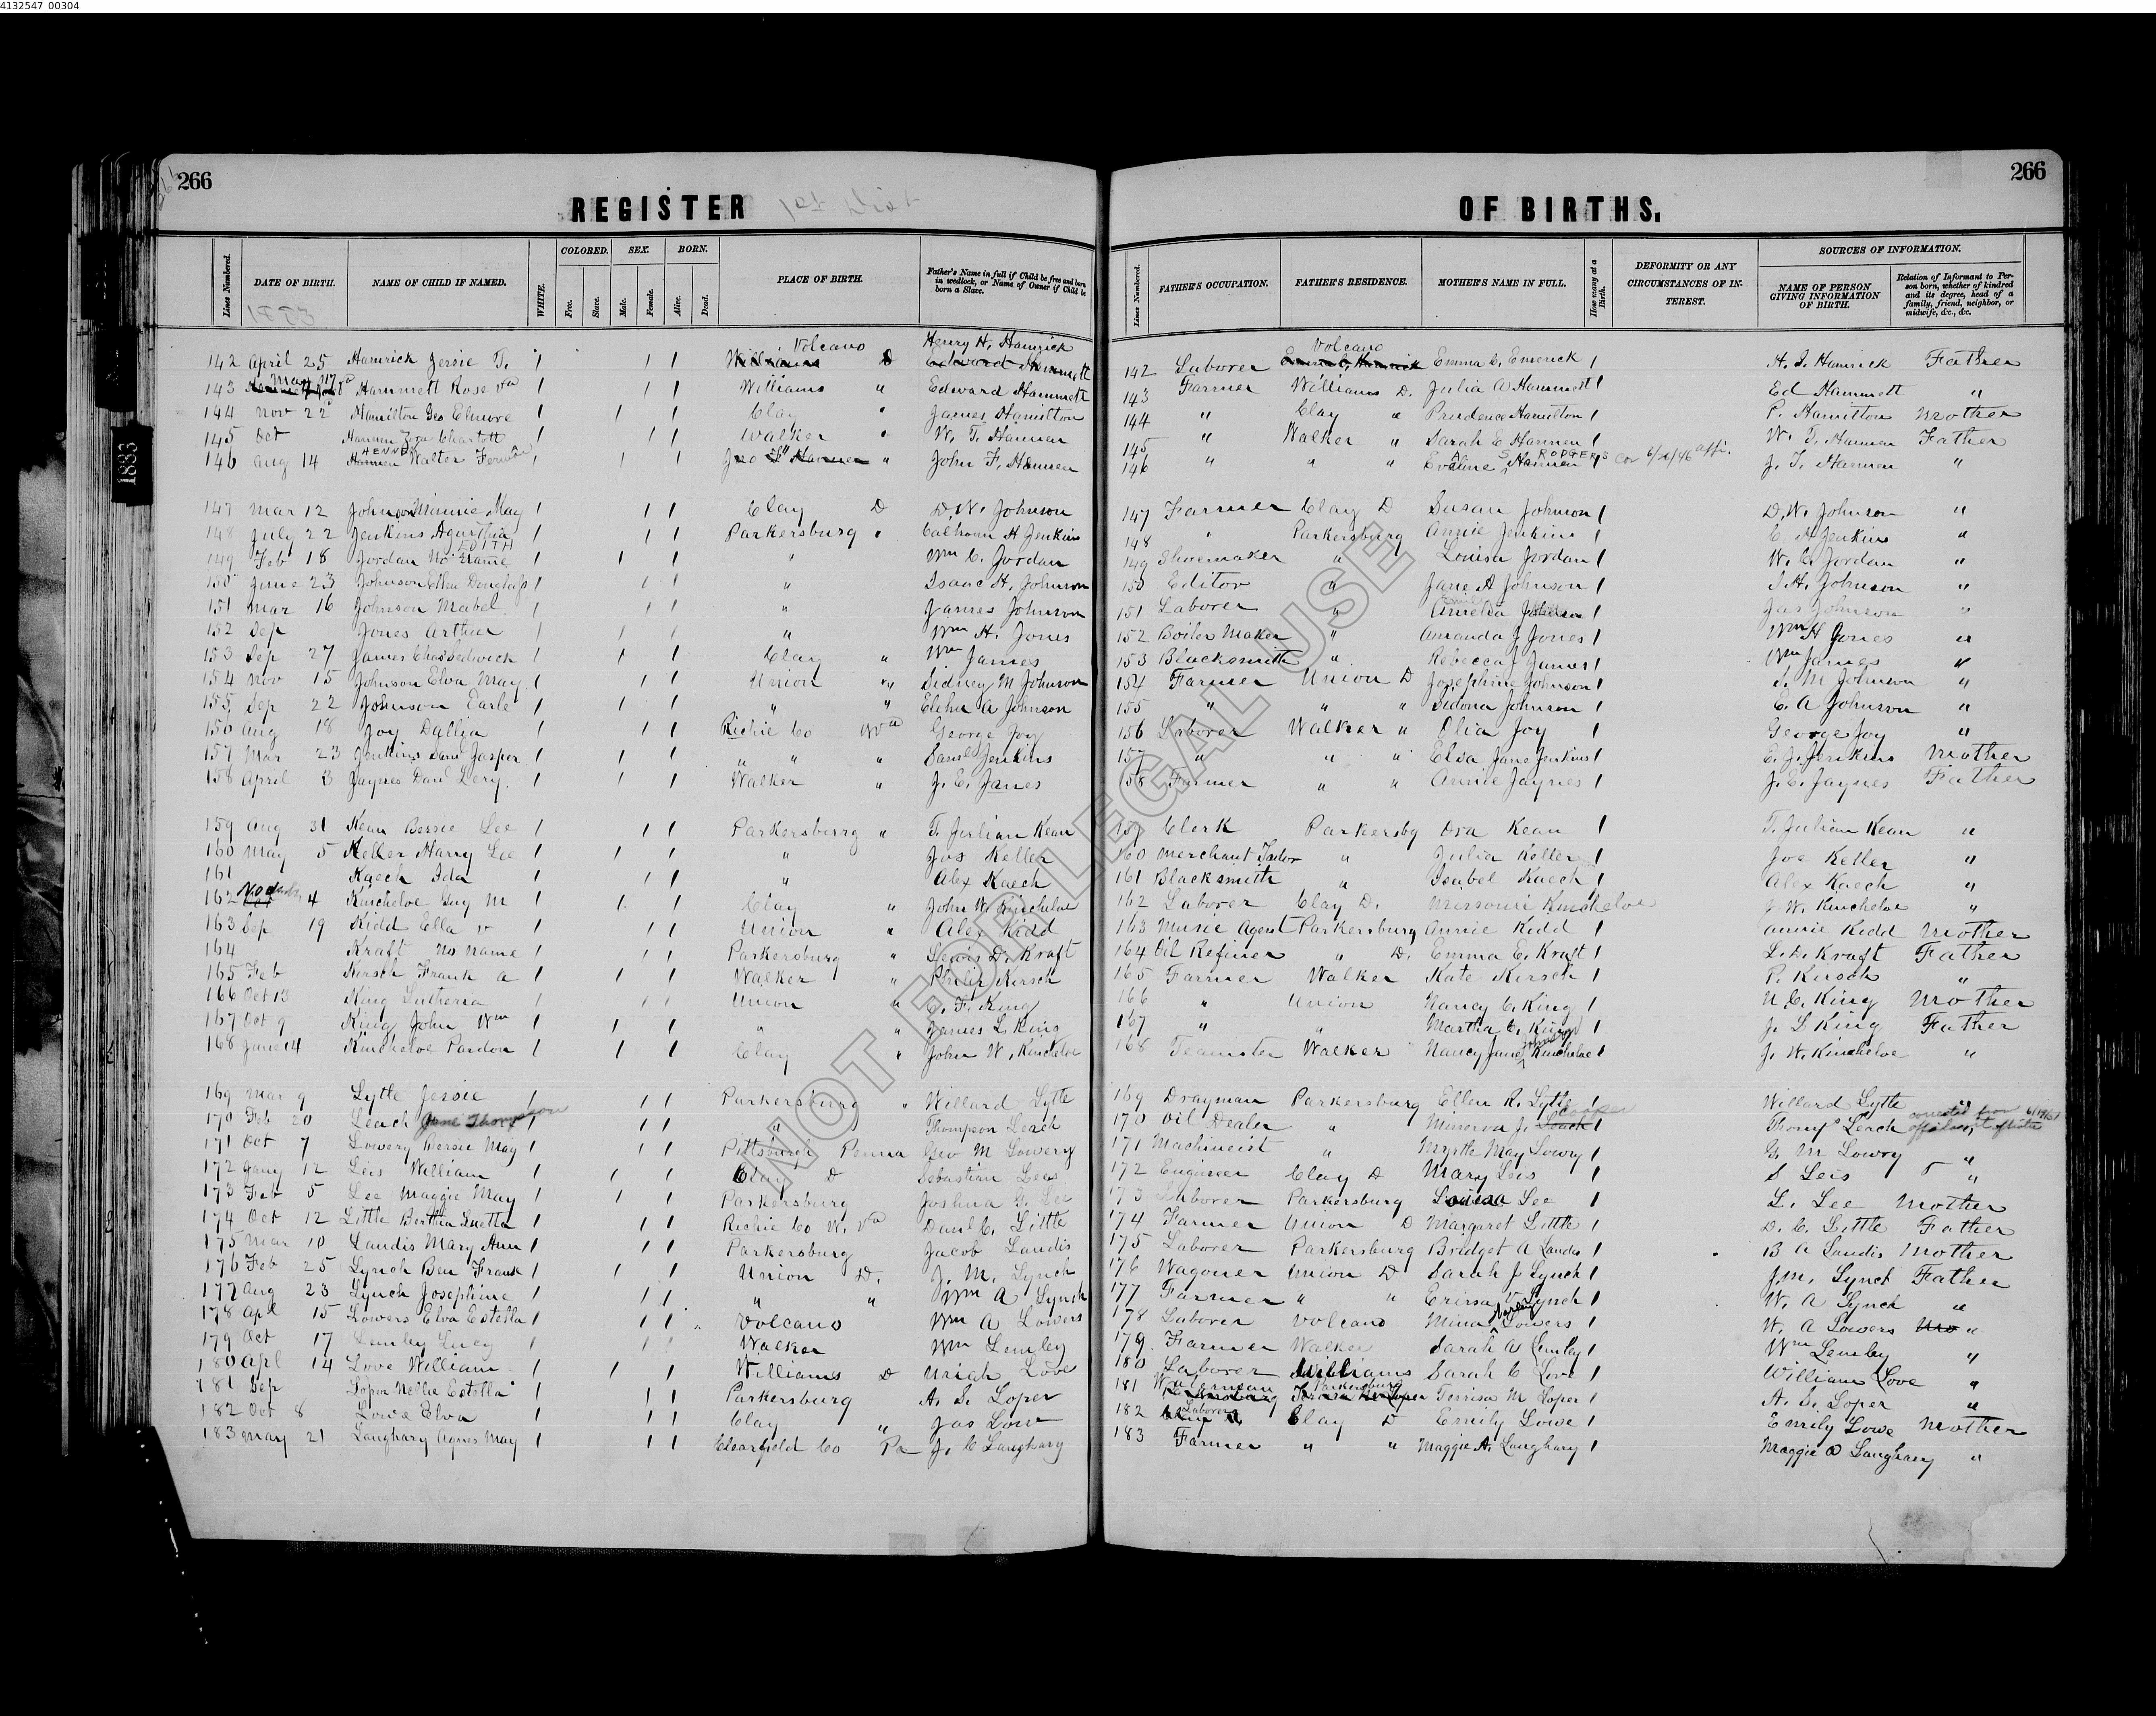 4132547_00304
266
REGISTER 1st Dist
Lines Numbered.
DATE OF BIRTH.
1883
NAME OF CHILD IF NAMED.
WHITE.
COLORED.
Free.
Slave.
SEX.
Male.
Female.
BORN.
Alive.
Dead.
PLACE OF BIRTH.
Father's Name in full if Child be free and born in wedlock, or Name of Owner if Child be born a Slave.
142 April 25 Hamrick Jessie T. Volcano Henry H. Hamrick
143 May 17 Hammett Rose Va Williams " Edward Hammett
144 Nov 22 Hamilton Geo Elmore Clay " James Hamilton
145 Oct Hannen Zora Charlott Walker " W. T. Hannen
146 Aug 14 HENNEN Walter John F. Hannen
147 Mar 12 Johnson Minnie May Clay D D. W. Johnson
148 July 22 Jenkins Parkersburg " Calhoun H Jenkins
149 Feb 18 Jordan No Name EDITH " Wm C. Jordan
150 June 23 Johnson Ellen Douglass " Isaac H. Johnson
151 Mar 16 Johnson Mabel " James Johnson
152 Sep Jones Arthur " Wm H. Jones
153 Sep 27 James Chas Clay " Wm James
154 Nov 15 Johnson Elva May Union " Sidney M Johnson
155 Sep 22 Johnson Earle " " Elihu A Johnson
156 Aug 18 Joy Dallia Richie Co W Va George Joy
157 Mar 23 Jenkins Danl Jasper " " " Danl Jenkins
158 April 3 Jaynes Danl Lery Walker " J. E. Janes
159 Aug 31 Kean Bessie Lee Parkersburg " T. Julian Kean
160 May 5 Keller Harry Lee " Jos Keller
161 Kaech Ida " Alex Kaech
162 4 Kincheloe Guy M Clay " John W. Kincheloe
163 Sep 19 Kidd Ella v Union " Alex Kidd
164 Kraft No name Parkersburg " Lewis D. Kraft
165 Feb Kirsch Frank A Walker " Philip Kirsch
166 Oct 13 King Union " C. F. King
167 Oct 9 King John Wm " " James L King
168 June 14 Kincheloe Pardon Clay " John W. Kincheloe
169 Mar 9 Lytle Jessie Parkersburg " Willard Lytle
170 Feb 20 Leach Jane Thompson " Thompson Leach
171 Oct 7 Lowery Bessie May Pittsburgh Penna Geo M Lowery
172 Jany 12 Leis William Clay D Sebastian Lees
173 Feb 5 Lee Maggie May Parkersburg Joshua G. Lee
174 Oct 12 Little Bertha Luetta Richie Co W. Va Danl C. Little
175 Mar 10 Landis Mary Ann Parkersburg Jacob Landis
176 Feb 25 Lynch Ben Frank Union D. J. M. Lynch
177 Aug 23 Lynch Josephine " " Wm A Lynch
178 Apl 15 Lowers Elva Estella Volcano Wm A Lowers
179 Oct 17 Lemley Lucy Walker Wm Lemley
180 Apl 14 Love William Williams D Uriah Love
181 Sep Loper Nellie Estella Parkersburg A. S. Loper
182 Oct 8 Lowe Elva Clay " Jas Low
183 May 21 Laughary Agnes May Clearfield Co Pa J. C Laughary
266
OF BIRTHS.
Lines Numbered.
FATHER'S OCCUPATION.
FATHER'S RESIDENCE.
MOTHER'S NAME IN FULL.
How many at a Birth.
DEFORMITY OR ANY CIRCUMSTANCES OF INTEREST.
SOURCES OF INFORMATION.
NAME OF PERSON GIVING INFORMATION OF BIRTH.
Relation of Informant to Person born, whether of kindred and its degree, head of a family, friend, neighbor, or midwife, &c., &c.
142 Laborer Volcano Emma C. Emerick 1 Father
143 Farmer Williams D. Julia A Hammett 1 Ed Hammett "
144 " Clay " Prudence Hamilton 1 P. Hamilton Mother
145 " Walker " Sarah E Hannen 1 W. T. Hannen Father
146 " " " Evaline S RODGERS cor 6/20/46 affi. J. F. Hannen "
147 Farmer Clay D Susan Johnson 1 D. W. Johnson "
148 " Parkersburg Annie Jenkins 1 C. H Jenkins "
149 Shoemaker " Louisa Jordan 1 W. C. Jordan "
150 Editor " Jane A Johnson 1 I. H. Johnson "
151 Laborer " Amelia Johnson 1 Jas Johnson "
152 Boiler Maker " Amanda J Jones 1 Wm H Jones "
153 Blacksmith " Rebecca J James 1 Wm James "
154 Farmer Union D Josephine Johnson 1 S. M Johnson "
155 " " " Sidona Johnson 1 E. A Johnson "
156 Laborer Walker " Olia Joy 1 George Joy "
157 " " " Elsa Jane Jenkins 1 E. J. Jenkins Mother
158 Farmer " " Annie Jaynes 1 J. E. Jaynes Father
159 Clerk Parkersbg Ora Kean 1 T. Julian Kean "
160 Merchant Tailor " Julia Keller 1 Joe Keller "
161 Blacksmith " Isabel Kaech 1 Alex Kaech "
162 Laborer Clay D. Missouri Kincheloe J. W. Kincheloe "
163 Music Agent Parkersburg Annie Kidd 1 Annie Kidd Mother
164 Oil Refiner " D. Emma E. Kraft 1 L. D. Kraft Father
165 Farmer Walker Kate Kirsch 1 P. Kirsch "
166 " Union Nancy C. King 1 N. C. King Mother
167 " " Martha C. King 1 J. L King Father
168 Teamster Walker Nancy Jane Kincheloe 1 J. W. Kincheloe "
169 Drayman Parkersburg Ellen R. Lytle 1 Willard Lytle "
170 Oil Dealer " Minerva J. Cooper 1 Thomps Leach
171 Machineist " Myrtle May Lowry 1 G. M Lowry "
172 Engineer Clay D Mary Leis 1 S Leis "
173 Laborer Parkersburg Louisa Lee 1 L. Lee Mother
174 Farmer Union D Margaret Little 1 D. C. Little Father
175 Laborer Parkersburg Bridget A Landis 1 B A Landis Mother
176 Wagoner Union D Sarah J Lynch 1 J. M. Lynch Father
177 Farmer " " Lynch 1 W. A Lynch "
178 Laborer Volcano Mina Lowers 1 W. A Lowers "
179 Farmer Walker Sarah A Lemley 1 Wm Lemley "
180 Laborer Williams Sarah C Love 1 William Love "
181 Parkersburg Terrisa M Loper 1 A. S. Loper "
182 Laborer Clay D Emily Lowe 1 Emily Lowe Mother
183 Farmer " " Maggie A. Laughary 1 Maggie A Laughary "
NOT FOR LEGAL USE
1883